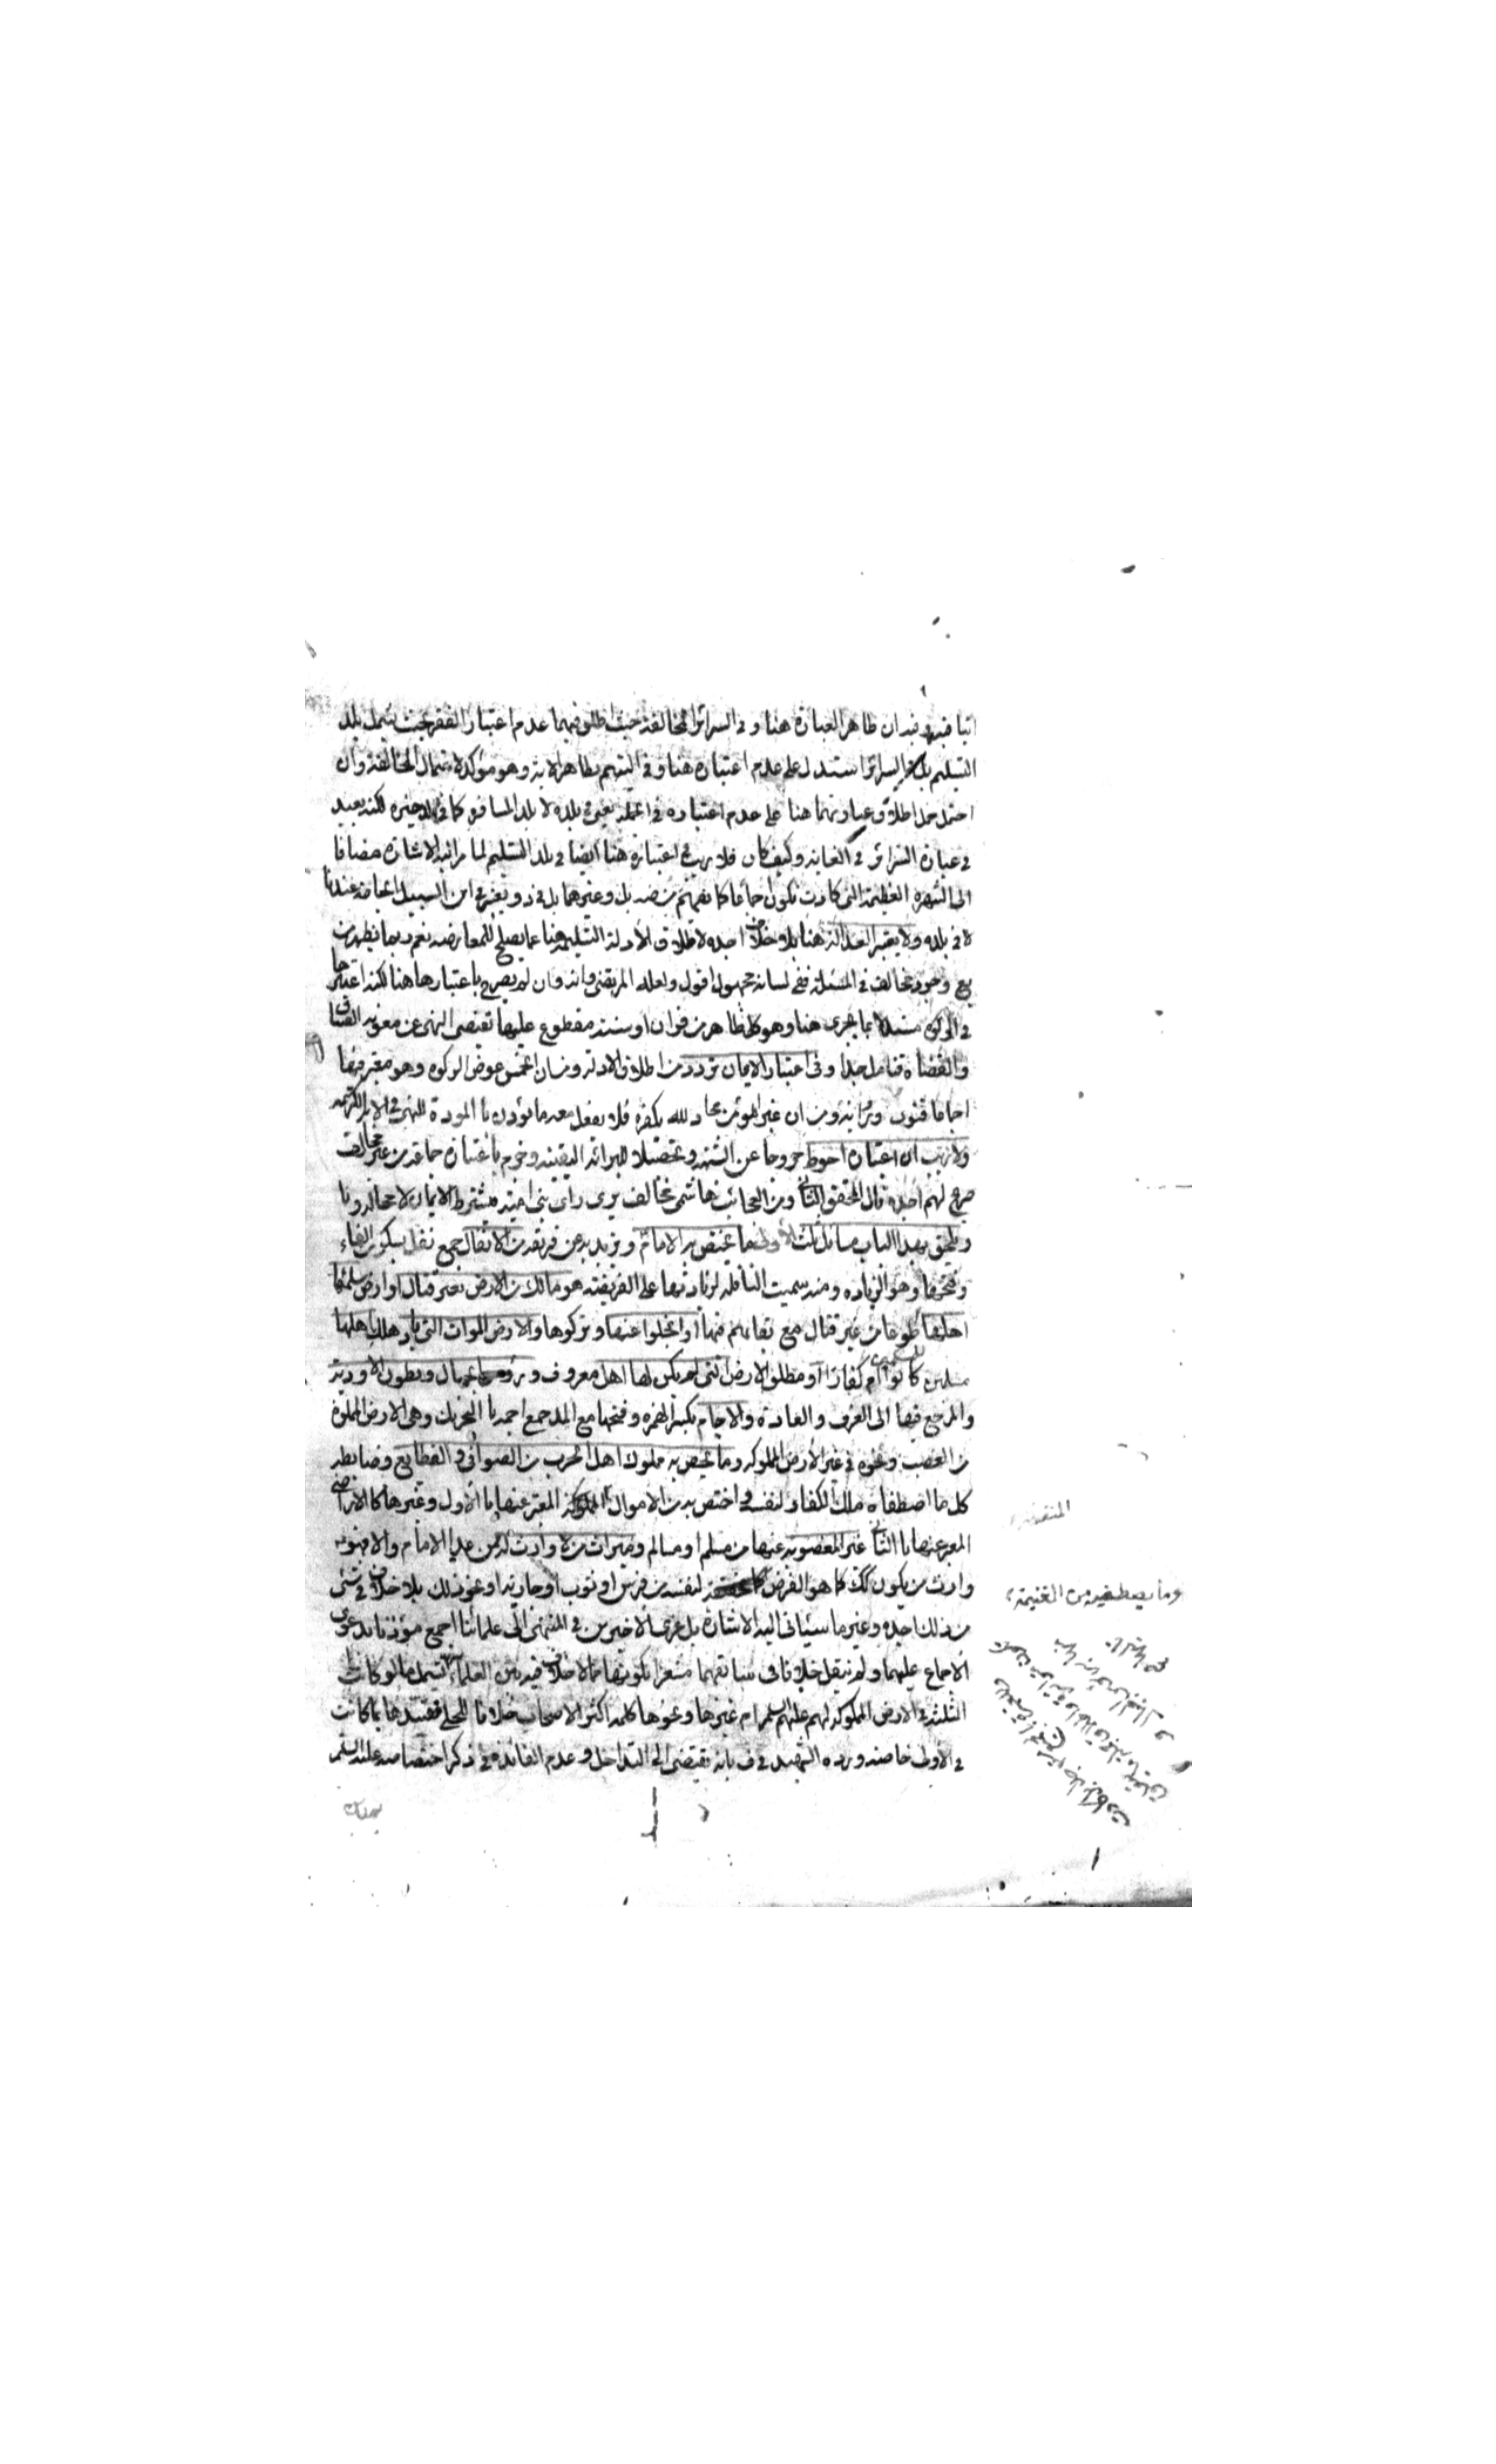 ظاهر العبارة هنا و في السرائر المخالفة حيث اطلق فيهما عدم اعتبار الفقر بحيث يشمل بلد
التسليم بل في السرائر استدل على عدم اعتباره هنا وفي اليتيم بظاهر الاية وهو مؤكد لاحتمال المخالفة وان
احتمل حمل اطلاق عبارتهما هنا على عدم اعتباره في الجملة يعني في بلده لا بلد المسافر كما في لكنه بعيد
في عبارة السرائر في الغاية وكيف كان فلا ريب في اعتباره هنا ايضا في بلد التسليم لما مر اليه الاشارة مضافا
الى الشهرة العظيمة التي كادت تكون اجماعا كما يفهم من ضه بل وغيرهما بل في د و يعتبر في ابن السبيل الحاجة عندنا
لا في بلده ولا يعتبر العدالة هنا بلا خلاف اجده لاطلاق الادلة السليمة هنا عما يصلح للمعارضة نعم ربما يظهر من
يع وجود مخالف في المسئلة ففي لسانه مجهول اقول ولعله المرتضى فانه وان لم يصرح باعتبارها هنا لكنه اعتبرها
في الزكوة مستدلا بما يجري هنا وهو كل ظاهر من قران او سنة مقطوع عليها تقتضي النهي عن معونة الفساق
والعصاة فتامل جدا وفي اعتبار الايمان تردد من اطلاق الادلة ومن ان الخمس عوض الزكوة وهو معتبر فيها
اجماعا فتوى و رواية ومن ان غير المؤمن محاد لله بكفره فلا يفعل معه ما يؤذن بالمودة للنهي في الاية الكريمة
ولا ريب ان اعتباره احوط خروجا عن الشبهة وتحصيلا للبرائة اليقينية وجزم باعتباره جماعة من غير مخالف
صريح لهم اجده قال المحقق الثاني ومن العجائب هاشمي مخالف يرى راي بني امية فيشترط الايمان لا محالة وبا
ويلحق بهذا الباب مسائل ثلث الاولى ما يختص به الامام و يزيد به عن فريقه من الانفال جمع نفل بسكون الفاء
وفتحها وهو الزيادة ومنه سميت النافلة لزيادتها على الفريضة هو ما ملك من الارض بغير قتال او ارض سلمها
اهلها طوعا من غير قتال مع بقائهم فيها او انجلوا عنها وتركوها والارض الموات التي باد هلك اهلها
مسلمين كانوا ام كفارا او مطلق الارض التي لم يكن لها اهل معروف و رؤوس الجبال وبطون الاودية
والمرجع فيها الى العرف والعادة والاجام بكسر الهمزة وفتحها مع المد جمع اجمة بالتحريك وهي الارض المملوة
من القصب ونحوه في غير الارض المملوكة وما يختص به ملوك اهل الحرب من الصوافي و القطايع وضابطه
كل ما اصطفاه ملك الكفار لنفسه و اختص به من الاموال المعبر عنها بالاول وغيرها كالاراضي
المعبر عنها بالثاني غير المغصوبة عنها من مسلم او مسالم وميراث من لا وارث له عدا الامام والا فهو
وارث من يكون كك كما هو الفرض لنفسه من فرس او ثوب او جارية او نحو ذلك بلا خلاف في شئ
من ذلك اجده وغير ما سيئاتي اليه الاشارة بل عزى الاخيرين في المنتهى الى علمائنا اجمع مؤذنا بدعوى
الاجماع عليهما ولم ينقل خلافا في سابقهما مشعرا بكونهما مما لا خلاف فيه بين العلماء يشمل ما لو كانت
الثلثة في الارض المملوكة لهم عليهم السلم ام غيرها و نحوها كلمة اكثر الاصحاب خلافا للحلي فقيدها بما كانت
في الاولى خاصة و رده الشهيد في ن بانه يقتضي الى التداخل و عدم الفائدة في ذكر اختصاصه عليه السلم
وما يصطفيه من الغنيمة